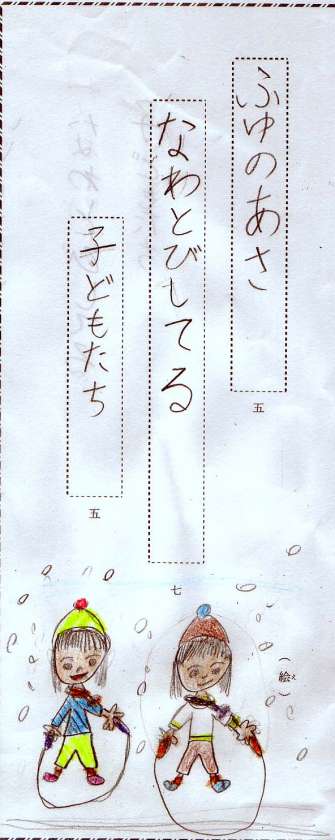 ふゆのあさ
五
なわとびしてる
七
子どもたち
五
（絵え）